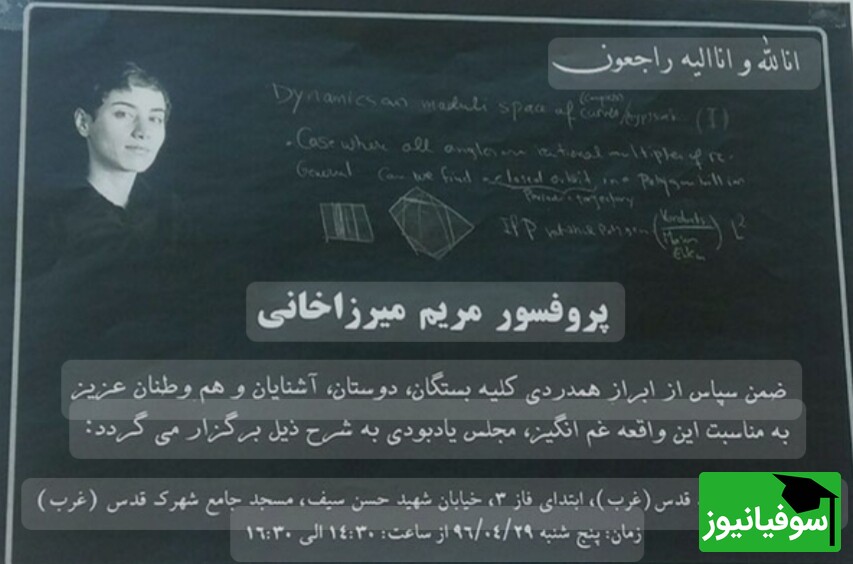 انالله و اناالیه راجعون
Dynamics on moduli space of curves
(compact)
(I)
. Case where all angles are rational multiples of π.
General Can we find a closed orbit in a Polygon
Periodic trajectory
If P
L²
پروفسور مریم میرزاخانی
ضمن سپاس از ابراز همدردی کلیه بستگان، دوستان، آشنایان و هم وطنان عزیز
به مناسبت این واقعه غم انگیز، مجلس یادبودی به شرح ذیل برگزار می گردد:
قدس (غرب)، ابتدای فاز ۳، خیابان شهید حسن سیف، مسجد جامع شهرک قدس (غرب)
زمان: پنج شنبه ۹۶/۰۴/۲۹ از ساعت: ۱۴:۳۰ الی ۱۶:۳۰
سوفیانیوز